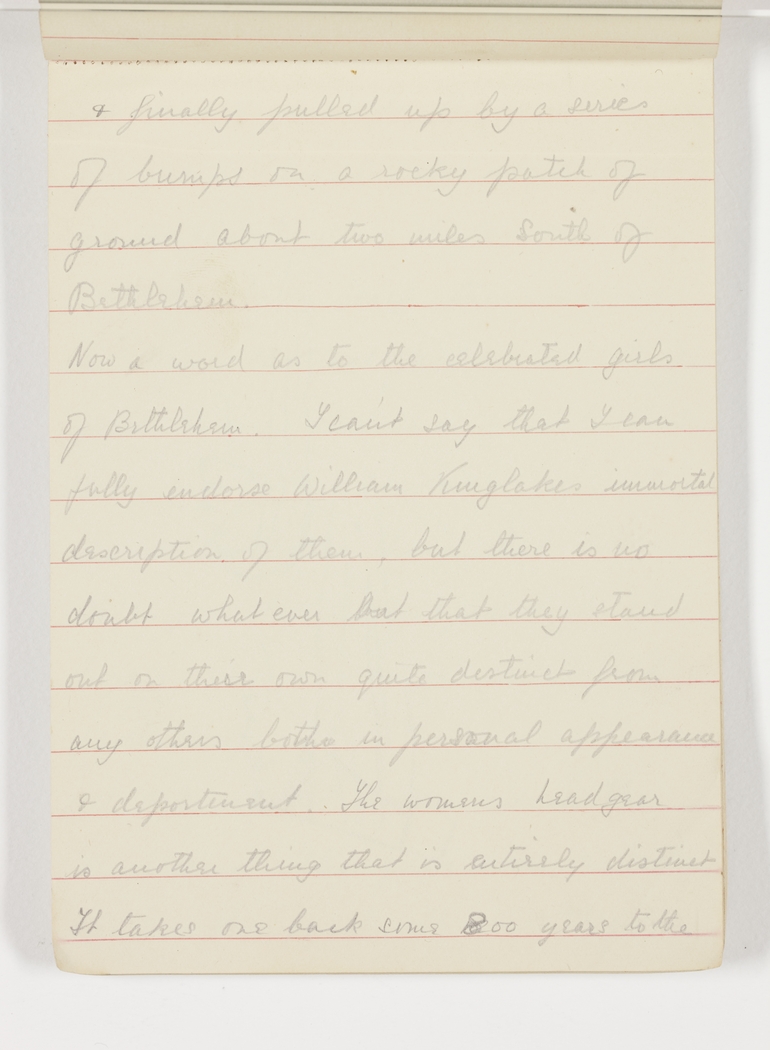 & finally pulled up by a series
of bumps on a rocky patch of
ground about two miles South of
Bethlehem.
Now a word as to the celebrated girls
of Bethlehem. I can't say that I can
fully endorse William Kinglakes immortal
description of them, but there is no
doubt what ever but that they stand
out on their own quite distinct from
any others both in personal appearance
& deportment. The womens headgear
is another thing that is entirely distinct
It takes one back some 800 years to the